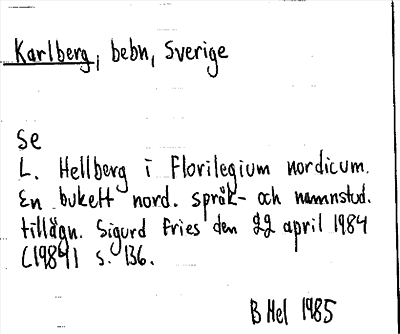 Karlberg, bebn, Sverige
Se
L. Hellberg i Florilegium nordicum.
En bukett nord. språk- och namnstud.
tillägn. Sigurd Fries den 22 april 1984
(1984) s. 136.
B Hel 1985